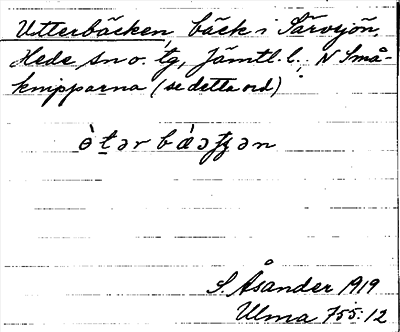 Utterbäcken, bäck i Särvsjön,
Hede sn o. tg, Jämtl. l.; N Små-
knipparna (se detta ord)
S Åsander 1919
Ulma 755:12